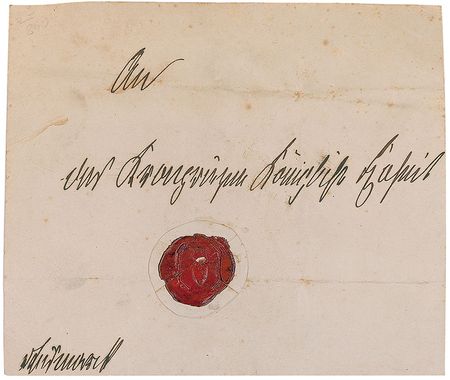 An
des Kronprinzen Königliche Hoheit
vBismarck